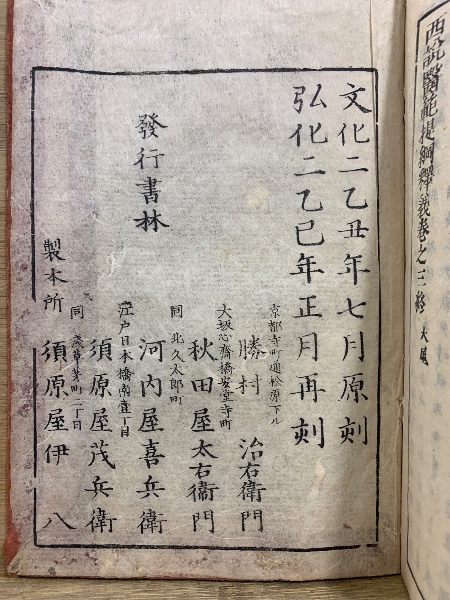 西説醫範提綱釋義卷之三終 大尾
文化二乙丑年七月原刻
弘化二乙巳年正月再刻
發行書林
京都寺町通松原下ル
勝村 治右衛門
大坂心斎橋安堂寺町
秋田屋太右衞門
同 北久太郎町
河内屋喜兵衛
江戸日本橋南壹丁目
須原屋茂兵衛
同 浅草茅町二丁目
製本所 須原屋伊八